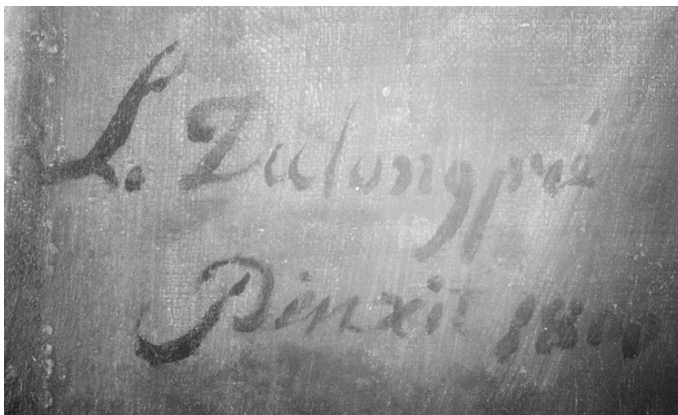 L. Dulongpré
Pinxit 18